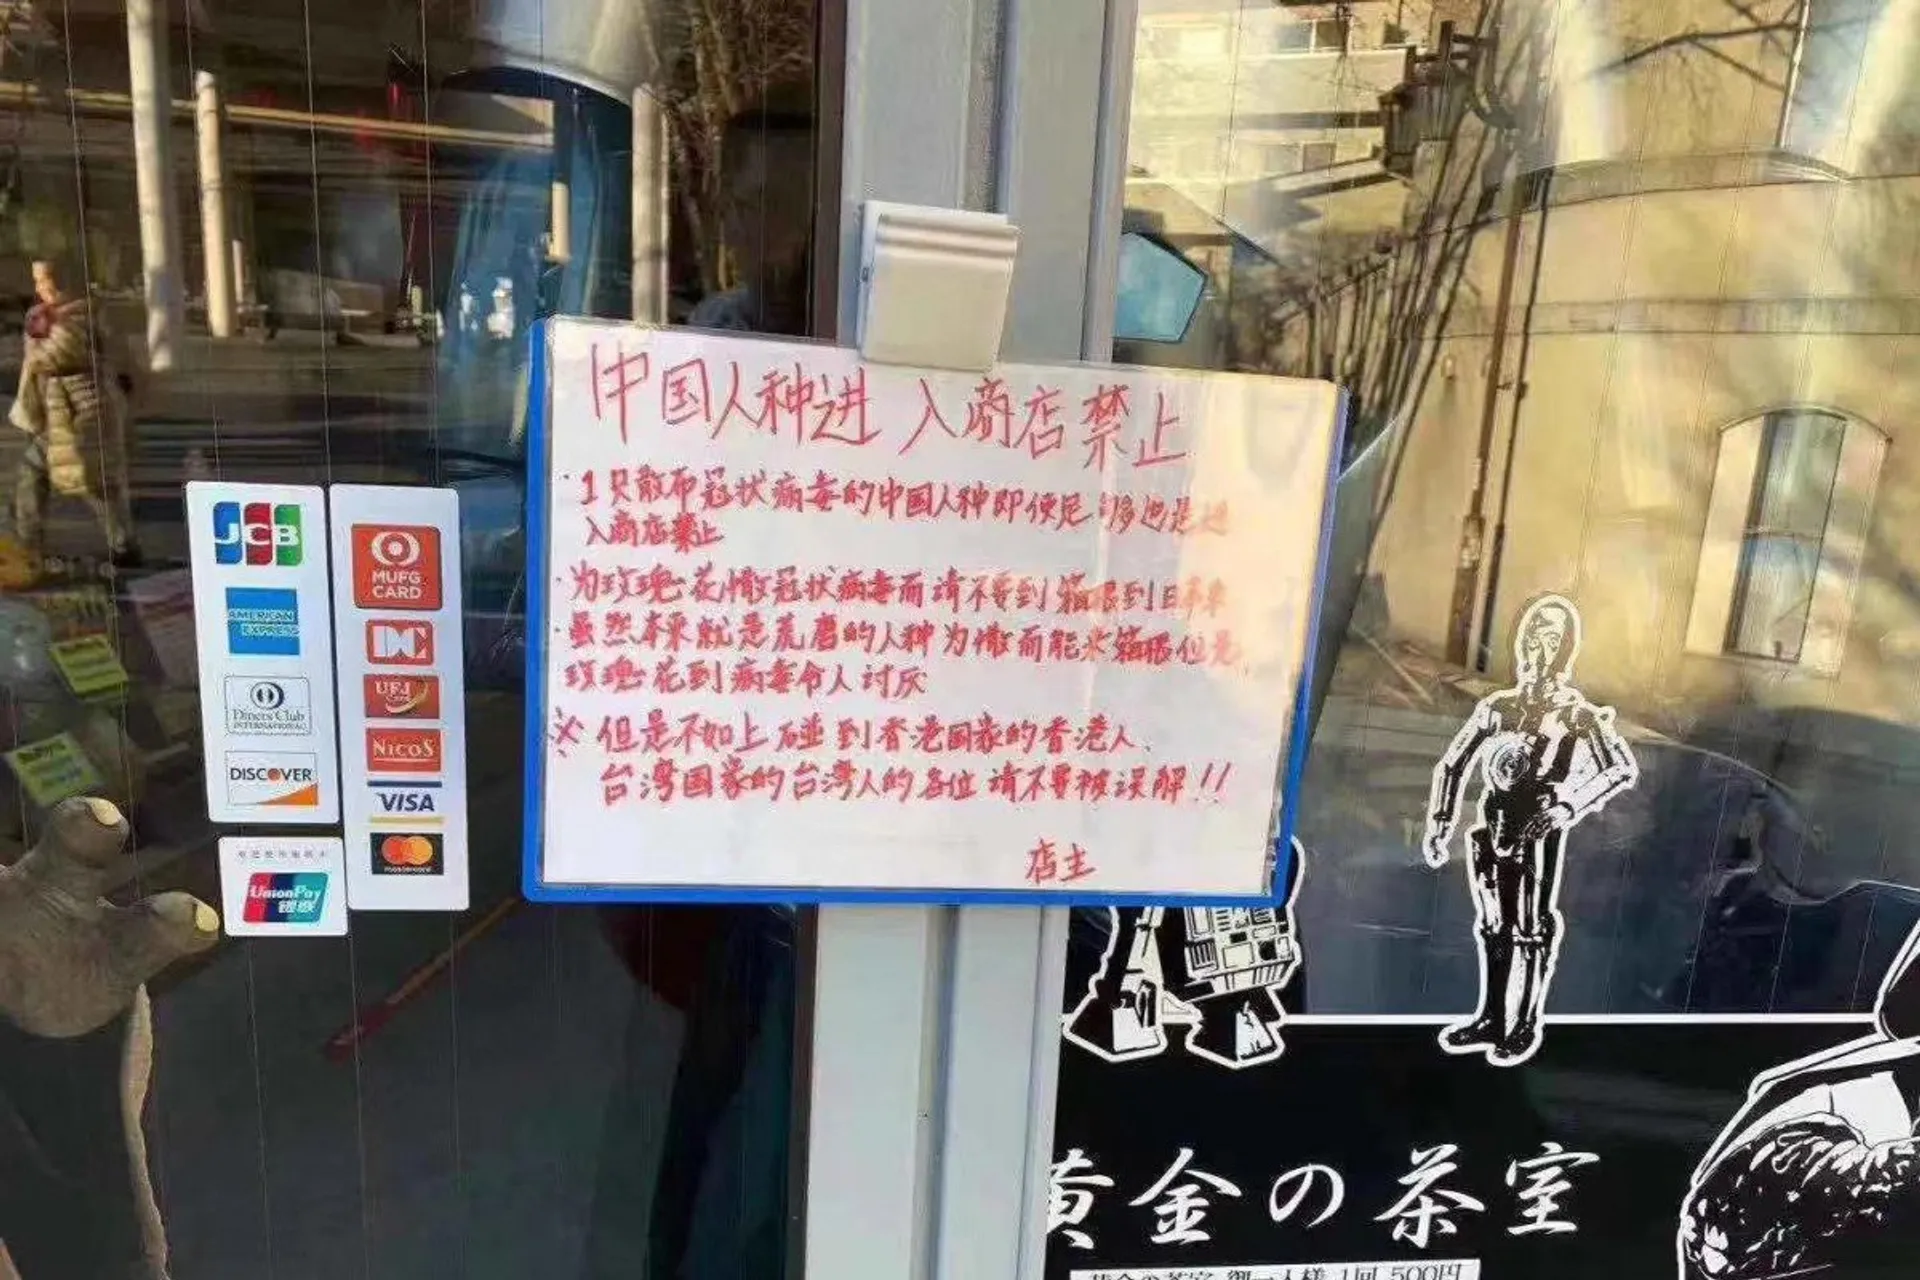 中国人种进入商店禁止
·1只散布冠状病毒的中国人种即使是
入商店禁止
·为玫瑰花撒冠状病毒而请不要到箱根到日本来
·虽然本来就是荒磨的人种为撒而能来箱根但是
玫瑰花到病毒令人讨厌
※但是不如上碰到香港国家的香港人、
台湾国家的台湾人的各位请不要被误解!!
店主
JCB
AMERICAN EXPRESS
Diners Club
INTERNATIONAL
DISCOVER
UnionPay
银联
MUFG
CARD
DC
UFJ Card
NICOS
VISA
mastercard
黄金の茶室
黄金の茶室 御一人様 1回 500円